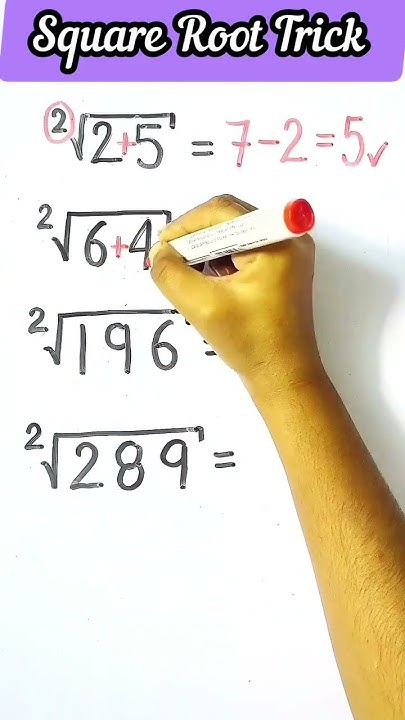 Square Root Trick
²√2+5 = 7-2=5✓
²√6+4
²√196
²√289 =